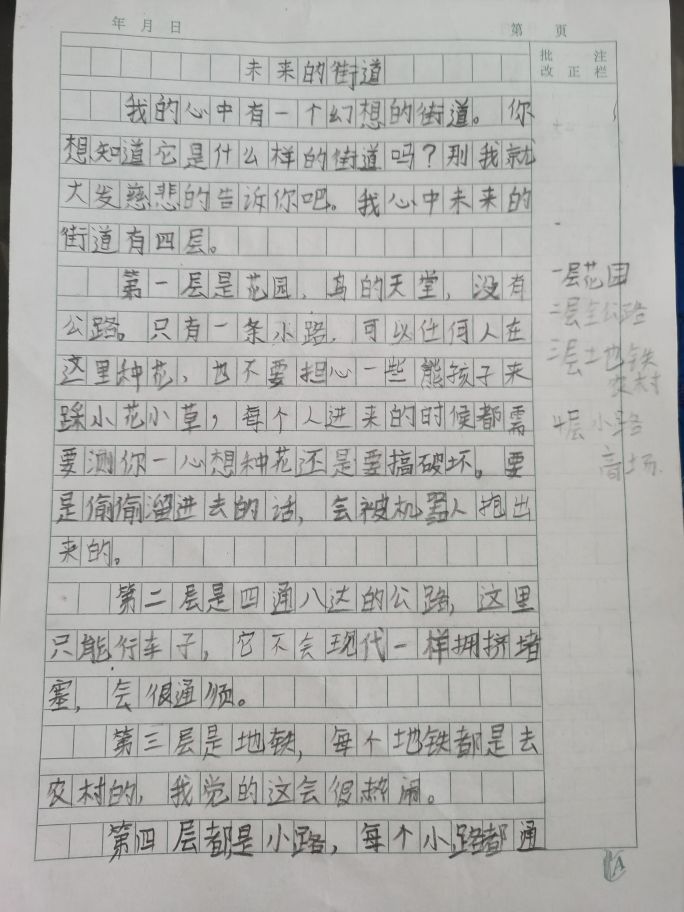 年 月 日
第 页
批 注
改 正 栏
未来的街道
我的心中有一个幻想的街道。你
想知道它是什么样的街道吗？那我就
大发慈悲的告诉你吧。我心中未来的
街道有四层。
第一层是花园，鸟的天堂，没有
公路。只有一条小路，可以任何人在
这里种花，也不要担心一些熊孩子来
踩小花小草，每个人进来的时候都需
要测你一心想种花还是要搞破坏。要
是偷偷溜进去的话，会被机器人抱出
来的。
第二层是四通八达的公路，这里
只能行车子，它不会现代一样拥挤堵
塞，会很通顺。
第三层是地铁，每个地铁都是去
农村的，我觉的这会很热闹。
第四层都是小路，每个小路都通
一层花园
二层全公路
三层地铁
农村
四层小路
商场